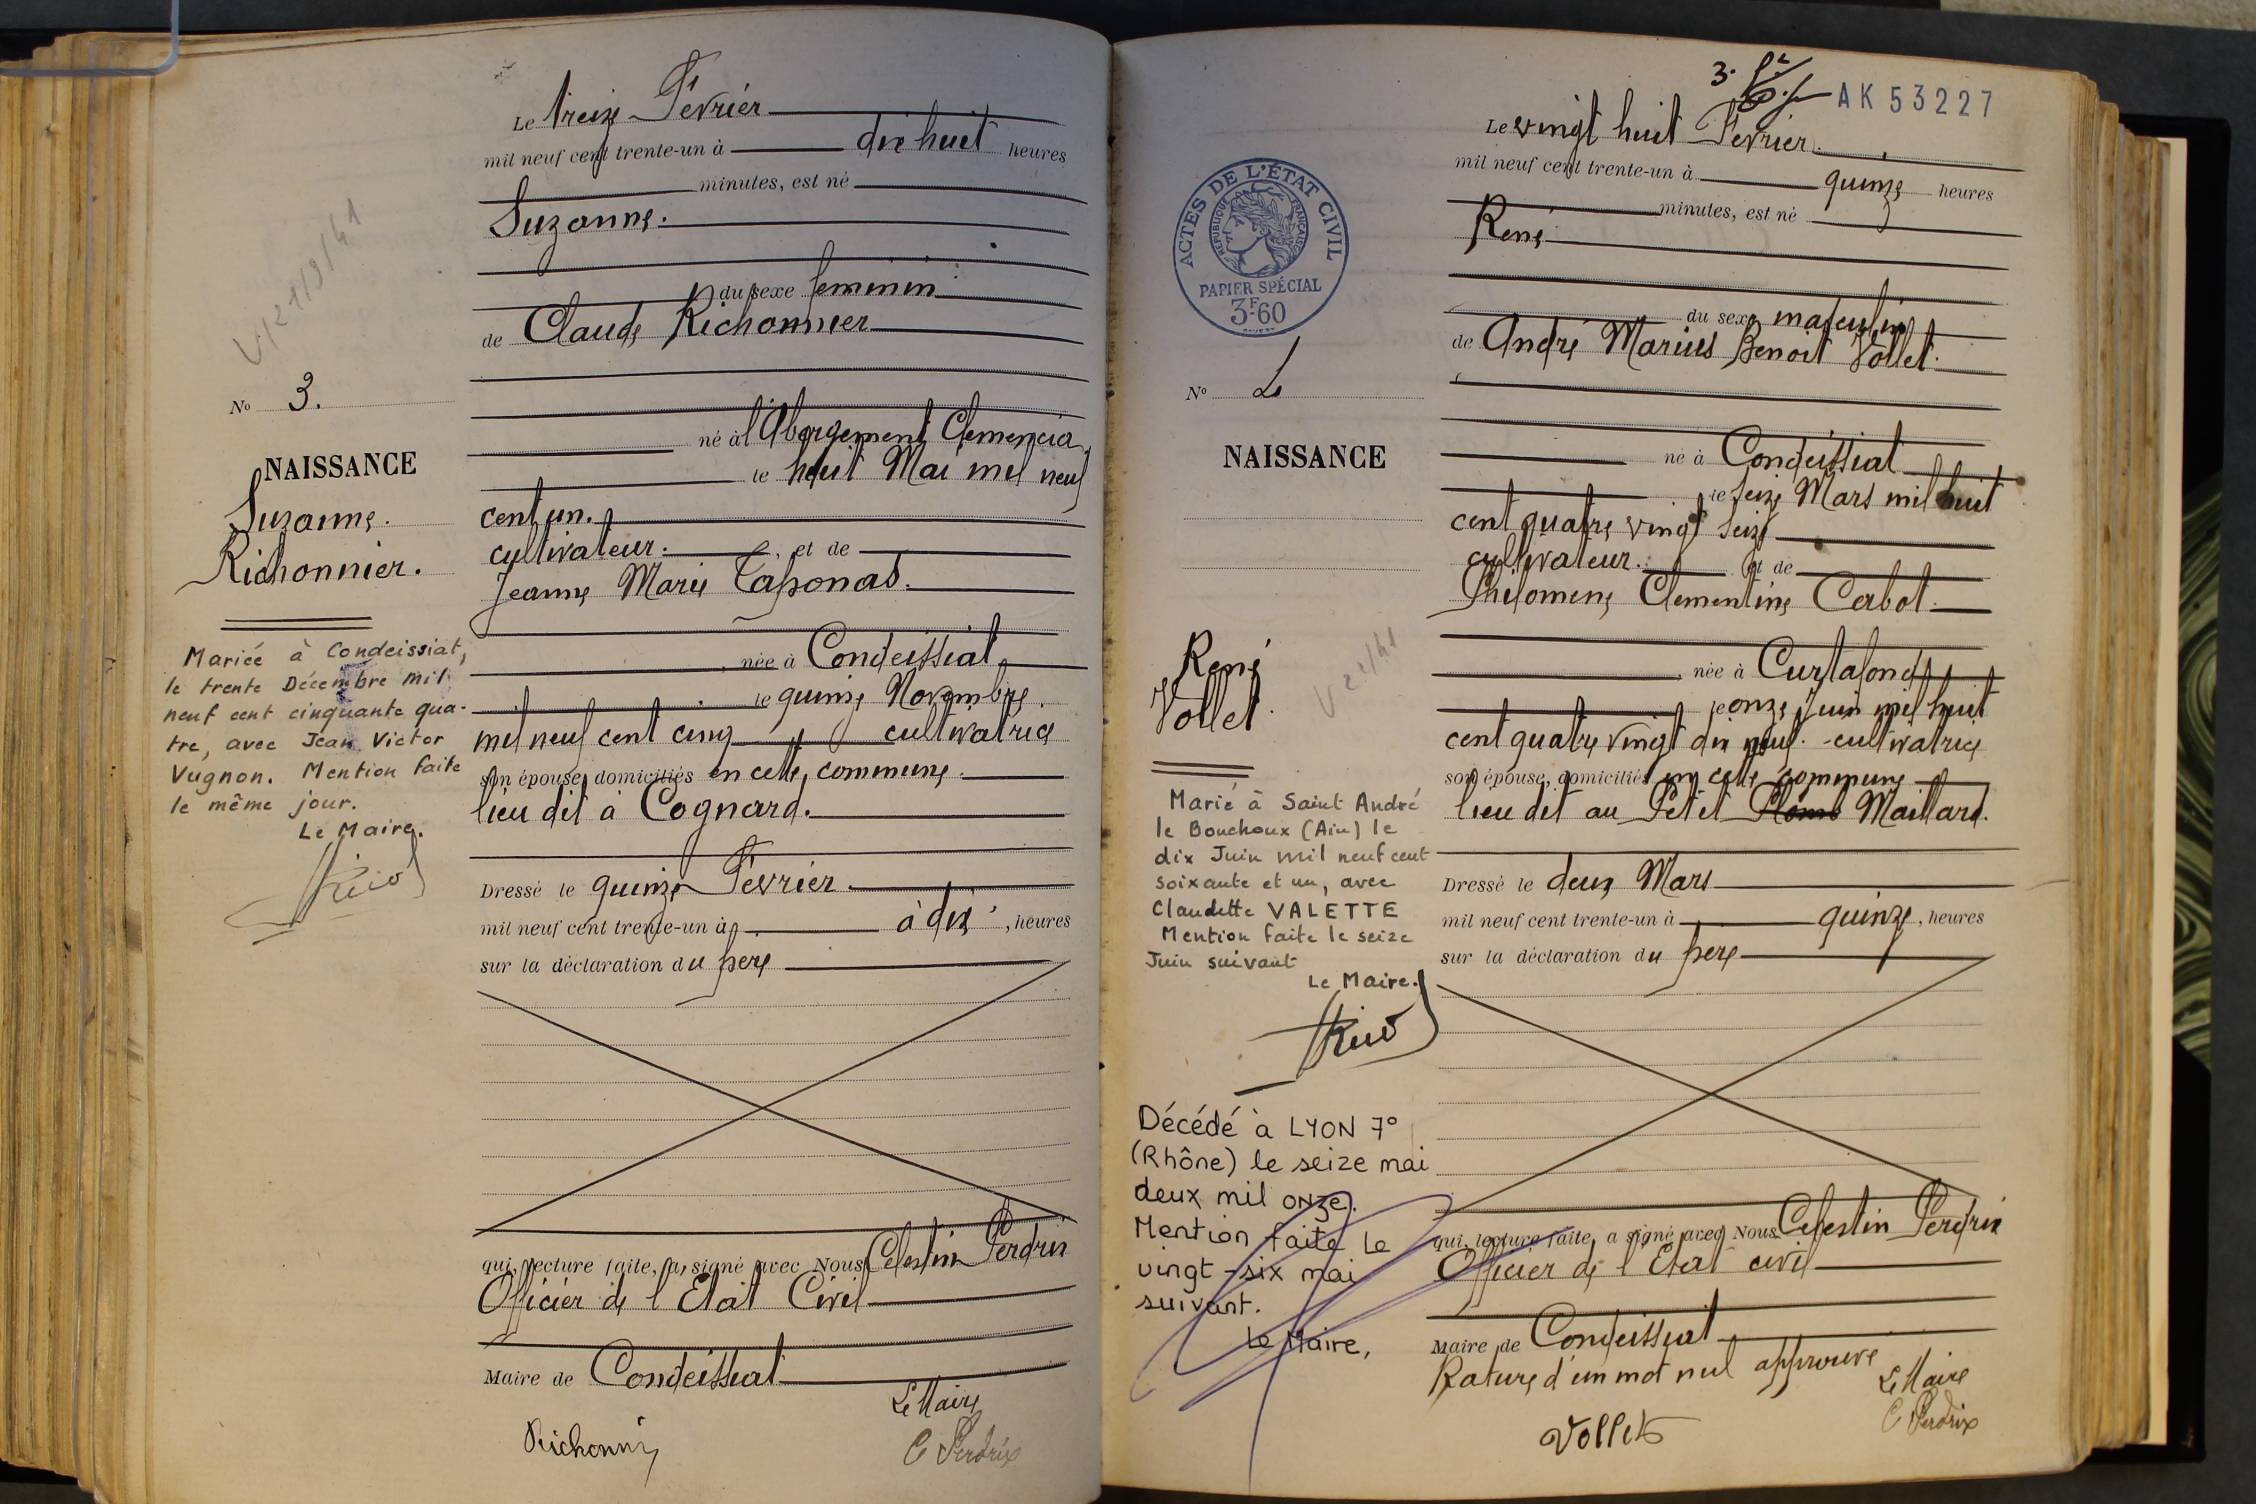 Le treize Février
mil neuf cent trente-un à dix huit heures
minutes, est né
Suzanne.
du sexe feminin
de Claude Richonnier
né à l'Abergement Clemencia
le huit Mai mil neuf
cent un.
cultivateur. , et de
Jeanne Marie Taponas.
, née à Condeissiat
le quinze Novembre
mil neuf cent cinq cultivatrice
son épouse, domiciliés en cette commune.
lieu dit à Cognard.
Dressé le quinze Février
mil neuf cent trente-un à à dix , heures
sur la déclaration du père
qui, lecture faite, a signé avec Nous Celestin Perdrix
Officier de l'Etat Civil
Maire de Condeissiat
Le Maire
C Perdrix
V 21/9/41
No 3.
NAISSANCE
Suzanne.
Richonnier.
Mariée à Condeissiat,
le trente Décembre mil
neuf cent cinquante qua-
tre, avec Jean Victor
Vugnon. Mention faite
le même jour.
Le Maire.
3.
AK 53227
Le vingt huit Février
mil neuf cent trente-un à quinze heures
minutes, est né
René
du sexe masculin
de André Marius Benoit Vollet.
né à Condeissiat
le seize Mars mil huit
cent quatre vingt seize
cultivateur. et de
Philomène Clementine Cerbot.
, née à Curtafond
le onze Juin mil huit
cent quatre vingt dix neuf. cultivatrice
son épouse, domiciliés en cette commune
lieu dit au Petit Plomb Maillard.
Dressé le deux Mars
mil neuf cent trente-un à quinze , heures
sur la déclaration du père
qui, lecture faite, a signé avec Nous Celestin Perdrix
Officier de l'Etat civil
Maire de Condeissiat
Rature d'un mot nul approuvé
Le Maire
C Perdrix
Vollet
ACTES DE L'ÉTAT CIVIL
RÉPUBLIQUE FRANÇAISE
PAPIER SPÉCIAL
3F60
No 4
NAISSANCE
René
Vollet.
Marié à Saint André
le Bouchoux (Ain) le
dix Juin mil neuf cent
soixante et un, avec
Claudette VALETTE
Mention faite le seize
Juin suivant
Le Maire.
Décédé à LYON 7°
(Rhône) le seize mai
deux mil onze.
Mention faite le
vingt-six mai
suivant.
Le Maire,